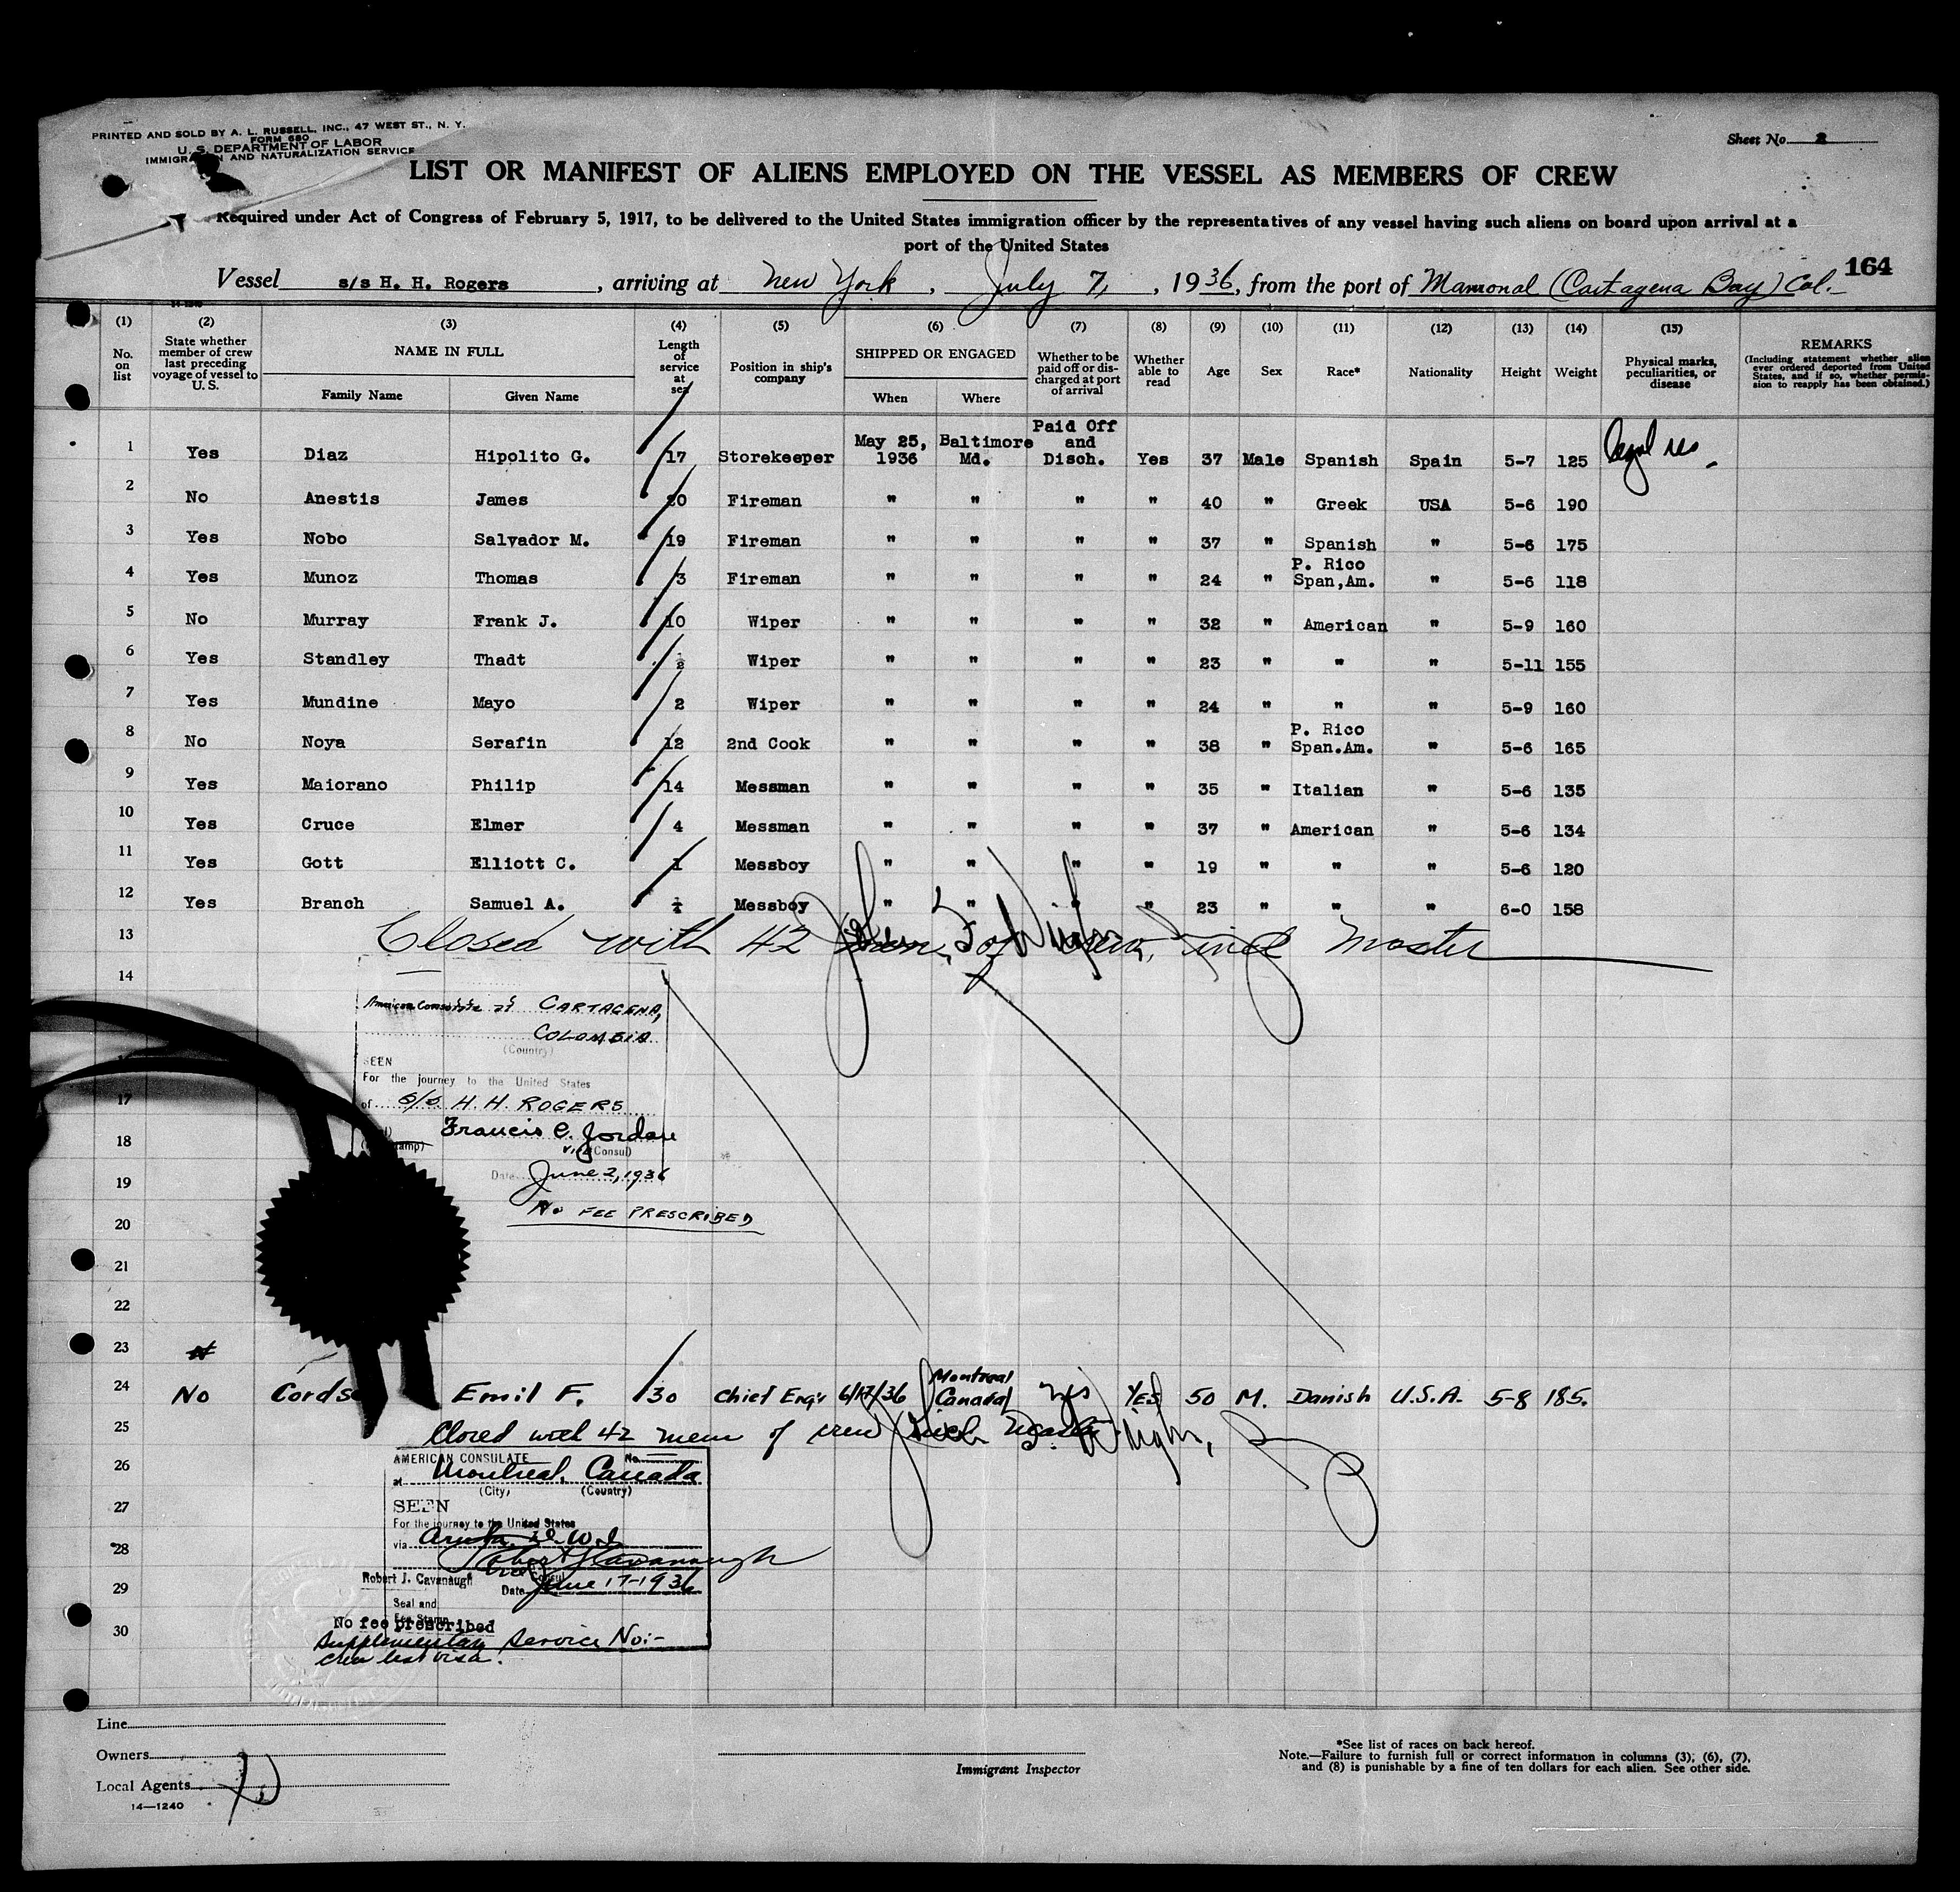 PRINTED AND SOLD BY A. L. RUSSELL, INC., 47 WEST ST., N. Y.
FORM 680
U. S. DEPARTMENT OF LABOR
IMMIGRATION AND NATURALIZATION SERVICE
Sheet No. 2
LIST OR MANIFEST OF ALIENS EMPLOYED ON THE VESSEL AS MEMBERS OF CREW
Required under Act of Congress of February 5, 1917, to be delivered to the United States immigration officer by the representatives of any vessel having such aliens on board upon arrival at a
port of the United States
164
Vessel s/s H. H. Rogers, arriving at New York, July 7, 1936, from the port of Mamonal (Cartagena Bay) Col.
14-1240
(1) (2) (3) (4) (5) (6) (7) (8) (9) (10) (11) (12) (13) (14) (15)
No. on list
State whether member of crew last preceding voyage of vessel to U. S.
NAME IN FULL
Family Name Given Name
Length of service at sea
Position in ship's company
SHIPPED OR ENGAGED
When Where
Whether to be paid off or discharged at port of arrival
Whether able to read
Age
Sex
Race*
Nationality
Height
Weight
Physical marks, peculiarities, or disease
REMARKS
(Including statement whether alien ever ordered deported from United States, and if so, whether permission to reapply has been obtained.)
1 Yes Diaz Hipolito G. 17 Storekeeper May 25, 1936 Baltimore Md. Paid Off and Disch. Yes 37 Male Spanish Spain 5-7 125 legal res.
2 No Anestis James 20 Fireman " " " " 40 " Greek USA 5-6 190
3 Yes Nobo Salvador M. 19 Fireman " " " " 37 " Spanish " 5-6 175
4 Yes Munoz Thomas 3 Fireman " " " " 24 " P. Rico Span,Am. " 5-6 118
5 No Murray Frank J. 10 Wiper " " " " 32 " American " 5-9 160
6 Yes Standley Thadt Wiper " " " " 23 " " " 5-11 155
7 Yes Mundine Mayo 2 Wiper " " " " 24 " " " 5-9 160
8 No Noya Serafin 12 2nd Cook " " " " 38 " P. Rico Span.Am. " 5-6 165
9 Yes Maiorano Philip 14 Messman " " " " 35 " Italian " 5-6 135
10 Yes Cruce Elmer 4 Messman " " " " 37 " American " 5-6 134
11 Yes Gott Elliott C. 1 Messboy " " " " 19 " " " 5-6 120
12 Yes Branch Samuel A. Messboy " " " " 23 " " " 6-0 158
13 Closed with 42 men of crew, incl Master
14
American Consulate at CARTAGENA,
COLOMBIA
(Country)
SEEN
For the journey to the United States
17 of s/s H. H. ROGERS
18 Francis C. Jordan
Vice (Consul)
19 Date June 2, 1936
20 No FEE PRESCRIBED
21
22
23
24 No Emil F. 30 Chief Eng'r 6/17/36 Montreal Canada yes YES 50 M. Danish U.S.A. 5-8 185.
25 Closed with 42 mem of crew incl. Master
AMERICAN CONSULATE No.
26 at Montreal, Canada
(City) (Country)
27 SEEN
For the journey to the United States
via Aruba, D.W.I.
28 Robert J Cavanaugh
Robert J. Cavanaugh Vice Consul
29 Date June 17-1936
Seal and
Fee Stamp
30 No fee prescribed
Supplementary Service No:-
crew list visa.
Line
Owners
Local Agents
14—1240
Immigrant Inspector
*See list of races on back hereof.
Note.—Failure to furnish full or correct information in columns (3), (6), (7),
and (8) is punishable by a fine of ten dollars for each alien. See other side.